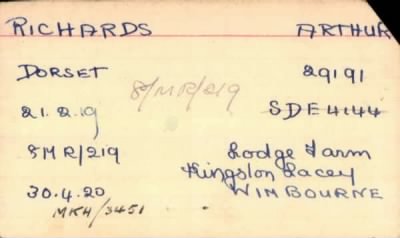 RICHARDS ARTHUR
DORSET 29191
8/MR/219
21.2.19 SDE4144
8MR/219 Lodge Farm
Kingston Lacey
30.4.20 WIMBOURNE
MKH/3451